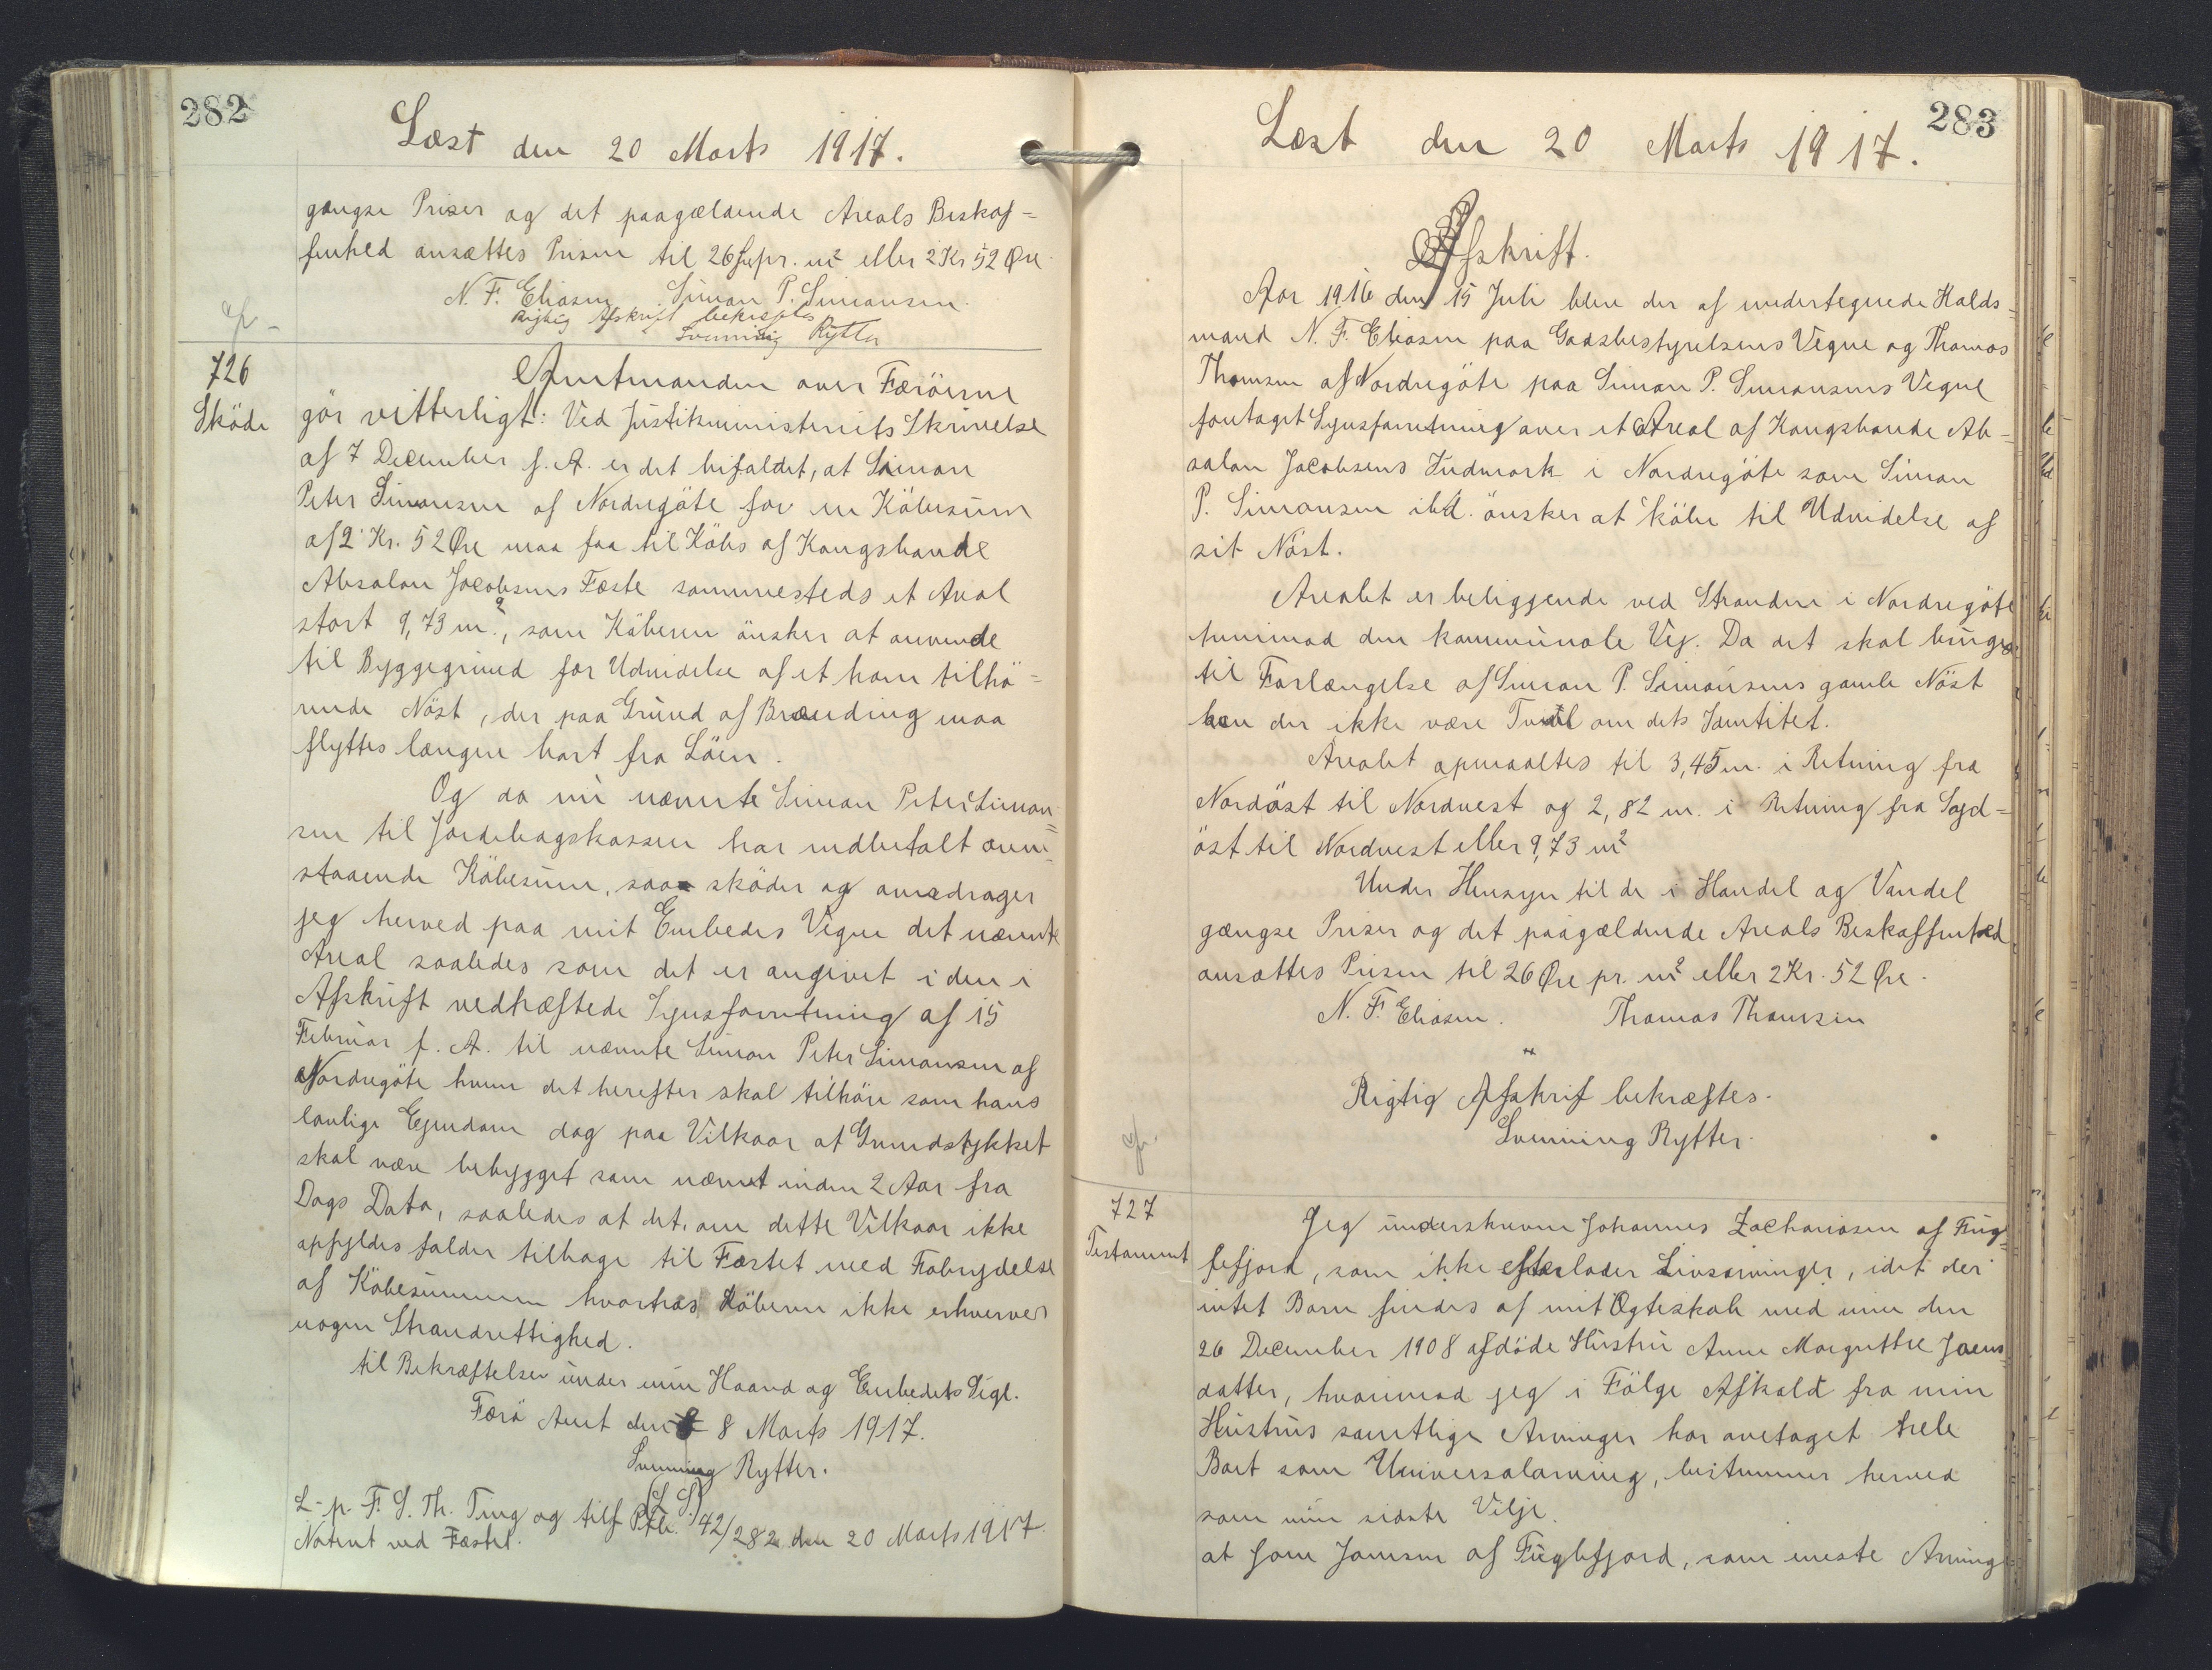 282
Læst den 20 Marts 1917.
gængse Priser og det paagældende Areals Beskaf=
fenhed ansættes Prisen til 26 Øre pr. m² eller 2 Kr 52 Øre.
N. F. Eliasen Simon P. Simonsen.
Rigtig Afskrift bekræftes
Svenning Rytter
726
Sköde
Amtmanden over Færöerne
gör vitterligt: Ved Justitsministeriets Skrivelse
af 7 December f. A. er det bifaldet, at Simon
Peter Simonsen af Nordregöte for en Köbesum
af 2 Kr. 52 Øre maa faa til Köbs af Kongsbonde
Absalon Jacobsens Fæste sammesteds et Areal
stort 9,73 m², som Köberen önsker at anvende
til Byggegrund for Udvidelse af et ham tilhö=
rende Nöst, der paa Grund af Brænding maa
flyttes længere bort fra Söen.
Og da nu nævnte Simon Peter Simon=
sen til Jordebogskassen har indbetalt oven=
staaende Köbesum, saa sköder og overdrager
jeg herved paa mit Embedes Vegne det nævnte
Areal saaledes som det er angivet i den i
Afskrift vedhæftede Synsforretning af 15
Februar f. A. til nævnte Simon Peter Simonsen af
Nordregöte hvem det herefter skal tilhöre som hans
lovlige Ejendom dog paa Vilkaar at Grundstykket
skal være bebygget som nævnt inden 2 Aar fra
Dags Dato, saaledes at det, om dette Vilkaar ikke
opfyldes falder tilbage til Fæstet med Fabrydelse
af Köbesummen hvorhos Köberen ikke erhverver
nogen Strandrettighed.
til Bekræftelse under min Haand og Embedets Segl.
Færö Amt den 8 Marts 1917.
Svenning Rytter.
(L S.)
L. p. F. S. Th. Ting og tilf Ptb. 42/282 den 20 Marts 1917.
Noteret ved Fæstet.
283
Læst den 20 Marts 1917.
Afskrift.
Aar 1916 den 15 Juli blev der af undertegnede Halds=
mand N. F. Eliasen paa Godsbestyrelsens Vegne og Thomas
Thomsen af Nordregöte paa Simon P. Simonsens Vegne
foretaget Synsforretning over et Areal af Kongsbonde Ab=
salon Jacobsens Indmark i Nordregöte som Simon
P. Simonsen ibd. önsker at köbe til Udvidelse af
sit Nöst.
Arealet er beliggende ved Stranden i Nordregöte
henimod den kommunale Vej. Da det skal bruges
til Forlængelse af Simon P. Simonsens gamle Nöst
kan der ikke være Tvivl om dets Identitet.
Arealet opmaaltes til 3,45 m. i Retning fra
Nordöst til Nordvest og 2,82 m. i Retning fra Syd=
öst til Nordvest eller 9,73 m²
Under Hensyn til de i Handel og Vandel
gængse Priser og det paagældende Areals Beskaffenhed
ansættes Prisen til 26 Øre pr. m² eller 2 Kr. 52 Øre.
N. F. Eliasen. Thomas Thomsen
Rigtig Afskrif bekræftes.
Svenning Rytter.
727
Testament
Jeg underskrevne Johannes Zachariasen af Fug=
lefjord, som ikke efterlader Livsarvinger, idet der
intet Barn findes af mit Ægteskab med min den
26 December 1908 afdöde Hustru Anne Margrethe Joens=
datter, hvorimod jeg i Fölge Afkald fra min
Hustrus samtlige Arvinger har overtaget hele
Boet som Universalarving, bestemmer herved
som min sidste Vilje.
at Jom Joensen af Fuglefjord, som eneste Arving